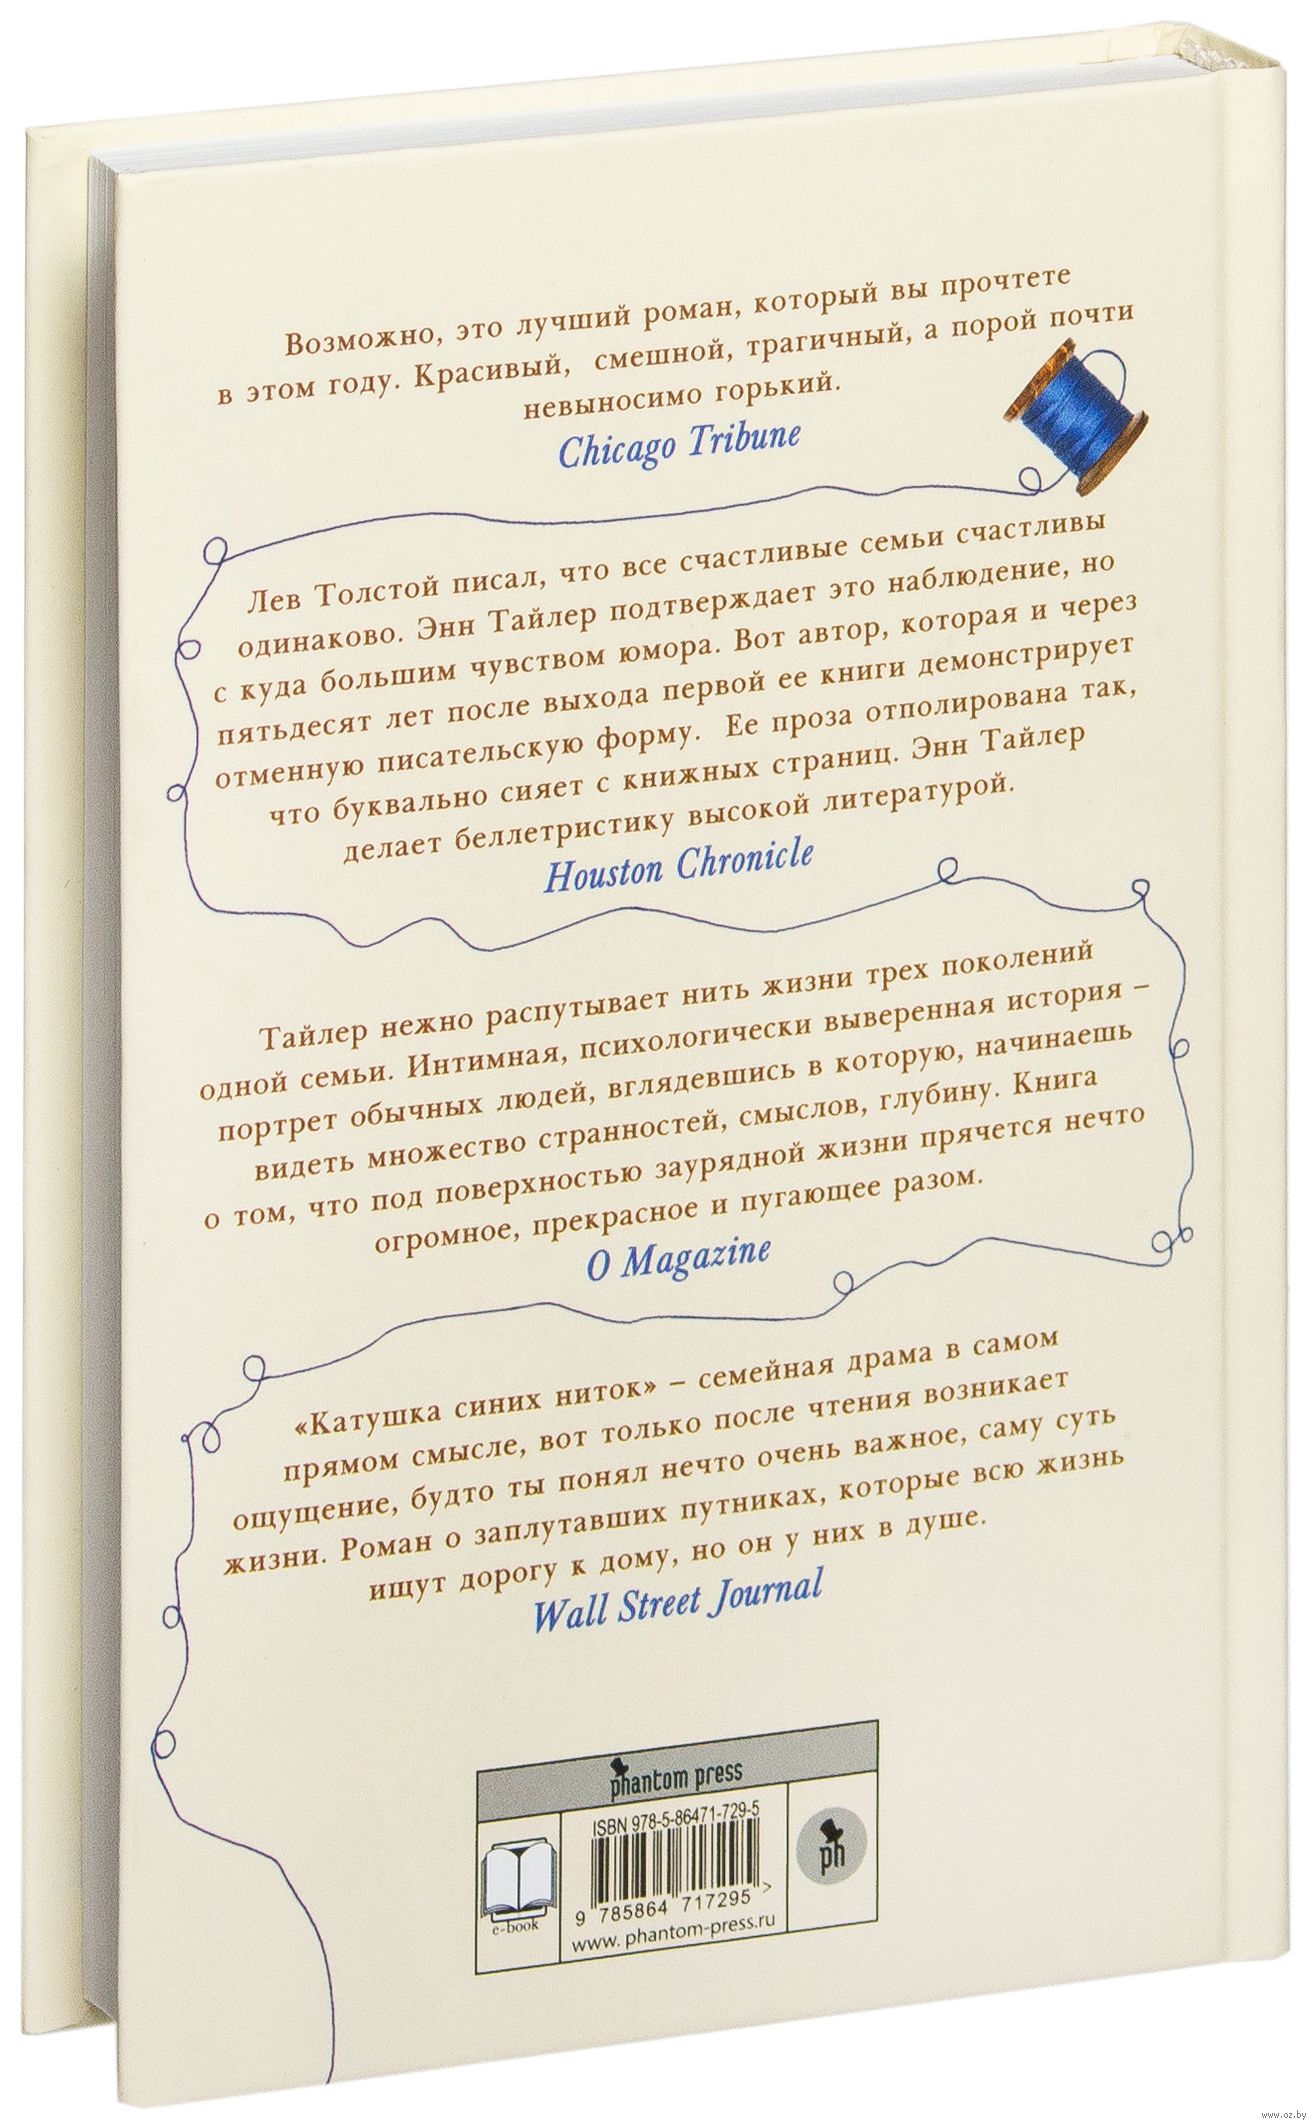 Возможно, это лучший роман, который вы прочтете
в этом году. Красивый, смешной, трагичный, а порой почти
невыносимо горький.
Chicago Tribune
Лев Толстой писал, что все счастливые семьи счастливы
одинаково. Энн Тайлер подтверждает это наблюдение, но
с куда большим чувством юмора. Вот автор, которая и через
пятьдесят лет после выхода первой ее книги демонстрирует
отменную писательскую форму. Ее проза отполирована так,
что буквально сияет с книжных страниц. Энн Тайлер
делает беллетристику высокой литературой.
Houston Chronicle
Тайлер нежно распутывает нить жизни трех поколений
одной семьи. Интимная, психологически выверенная история –
портрет обычных людей, вглядевшись в которую, начинаешь
видеть множество странностей, смыслов, глубину. Книга
о том, что под поверхностью заурядной жизни прячется нечто
огромное, прекрасное и пугающее разом.
O Magazine
«Катушка синих ниток» – семейная драма в самом
прямом смысле, вот только после чтения возникает
ощущение, будто ты понял нечто очень важное, саму суть
жизни. Роман о заплутавших путниках, которые всю жизнь
ищут дорогу к дому, но он у них в душе.
Wall Street Journal
phantom press
ISBN 978-5-86471-729-5
ph
9 785864 717295 >
e-book
www. phantom-press.ru
www.oz.by